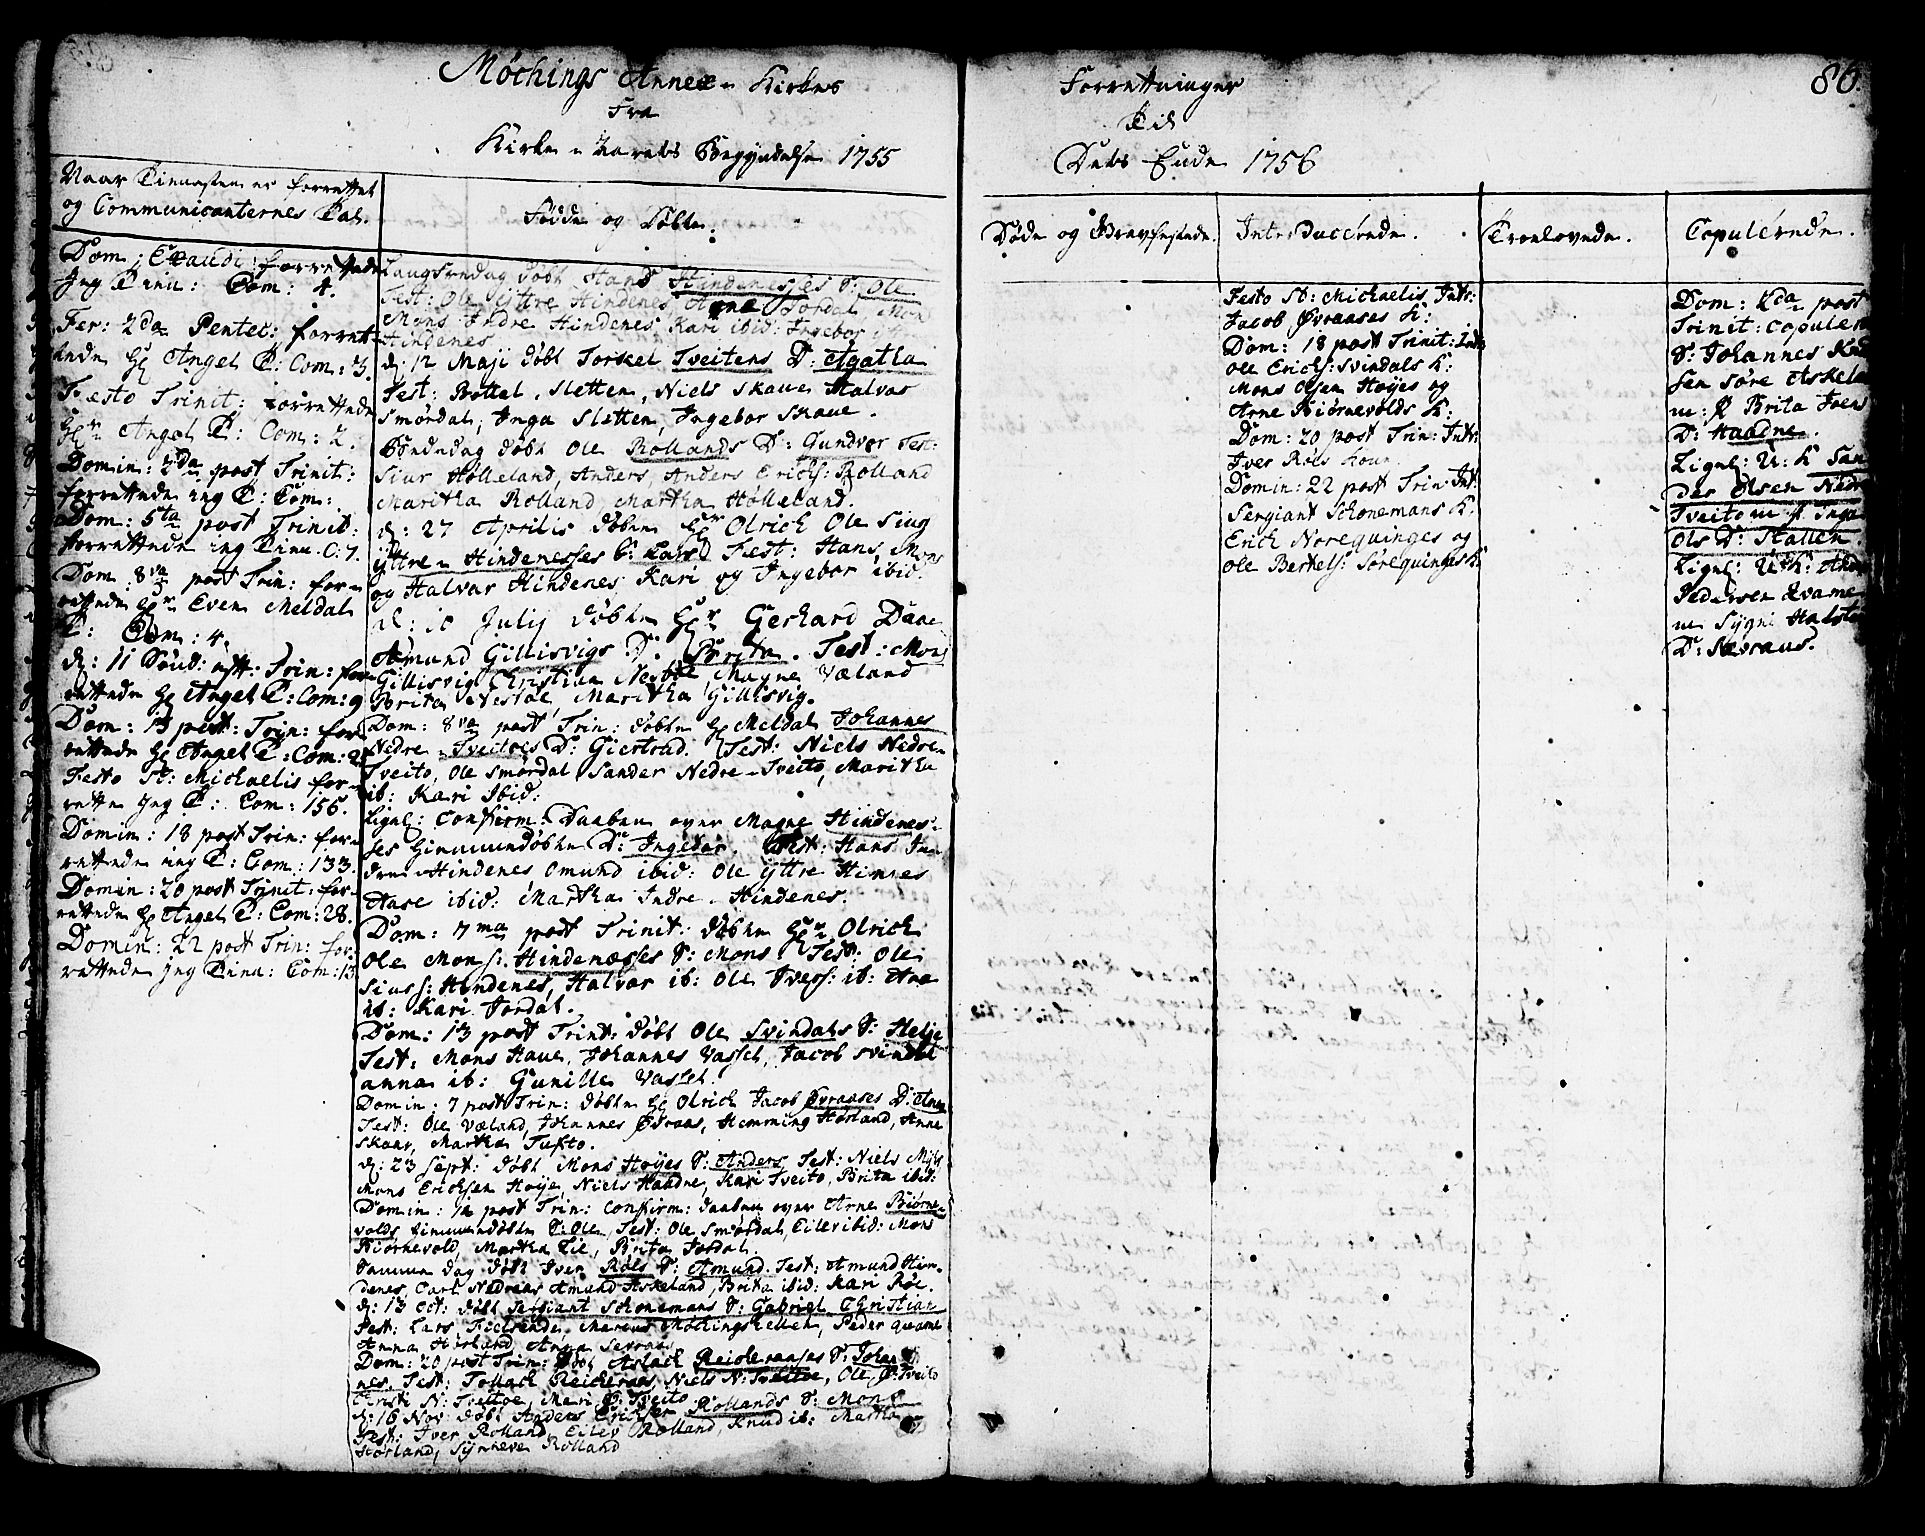 Møchings Annex Kirkes
Fra
Kirke Aarets Begyndelse 1755
Naar Tienesten er forrettet
og Communicanternes Tal.
Dom: Exaudi forrettede
Ing Tien: Com: 4.
Fer: 2da Pentec: forret-
tede Hr Angel T: Com: 3.
Festo Trinit: forrettede
Hr Angel T: Com: 2.
Domin: 2da post Trinit:
forrettede ieg T: Com:
Dom: 5ta post Trinit:
forrettede ieg Tien. C: 7.
Dom 8va post Trin: for-
rettede Hr Even Meldal
T: Com: 4.
d: 11 Sønd: eft. Trin: for-
rettede Hr Angel T: Com: 9
Dom: 13 post: Trin: for-
rettede Hr Angel T: Com: 2
Festo St: Michaelis for-
rette Jeg T: Com: 156.
Domin: 18 post Trin: for-
rettede ieg T: Com: 133.
Domin: 20 post Trinit: for-
rettede Hr Angel T: Com: 28.
Domin: 22 post Trin: for-
rettede Jeg Tien: Com: 13
Fødde og Døbte.
Langfredag døbt Hans Hindenesses S: Ole
Test: Ole Yttre Hindenes Jordal Mons
Mons Indre Hindenes, Kari ibid: Ingebor
Hindenes
d: 12 Maji døbt Torkel Tveitens D: Agatha
Test: Bottel Sletten, Niels Skaue Halvar
Smørdal, Inga Sletten, Ingebor Skaue.
Søndag døbt Ole Rollands D: Gundvor Test:
Siur Hølleland, Anders, Anders Erichs: Rolland
Maritha Rolland Martha Hølleland.
d: 27 Aprilis døbte Hr Olrich Ole Siug
Yttre Hindenesses S: Lars Test: Hans, Mons
og Halvar Hindenes Kari og Ingebor ibid.
d: 10 Julij døbte Hr Gerhard Dane
Amund Gillisvigs D: Brita. Test: Mons
Gillisvig Christian Nestøe, Magne Væland
Brita Nestøe, Maritha Gillisvig.
Dom: 8va post Trin: døbte Hr Meldal Johannes
Nedre Tveitoes D: Giertrud. Test: Niels Nedre
Tveito, Ole Smørdal Sander Nedre Tveito, Maritha
ib: Kari Ibid:
Lignl: Confirm: Daaben over Magne Hindenes-
ses hiemmedøbte D: Ingebor. Test: Hans In-
dre Hindenes Omund ibid: Ole Yttre Himnes
Aase ibid: Martha Indre Hindenes.
Dom: 7ma post Trinit: døbte Hr Olrich
Ole Mons: Hindenæsses S: Mons Test: Ole
Siurs: Hindenes, Halvar ib: Ole Ivers: ib: Ane
ib: Kari Jordal.
Dom: 13 post Trint: døbt Ole Svindals S: Helje
Test: Mons Haue, Johannes Vassel, Jacob Svindal
anna ib: Gunille Vassel.
Domin: 7 post Trin: døbte Hr Olrich Jacob Øvraases D: Anna
Test: Ole Væland, Johannes Øvraas, Hemming Hørland, Anna
Skaue, Martha Tufto.
d: 23 Sept: døbt Mons Høyes S: Anders Test: Niels
Mons Erichsen Høye, Niels Haadne, Kari Tveito, Brita ibid:
Domin: post Trin: Confirm: daaben over Arne Biørne-
volds hiemmedøbte S: Ole, Test: Ole Smørdal, Eilev ibid: Mons
Biørnevold, Martha Lie, Brita Jordal.
Samme Dag døbt Iver Røls S: Amund. Test: Amund Him-
denes, Carl Nedraas Amund Askeland, Brita ibid: Kari Røl.
d: 13 Oct: døbt Sergiant Schonemans S: Gabriel Christian
Test: Lars Marcus Møchingshellen, Peder Quame
Anna Hørland, Anna Sevraas
Dom: 20 post Trin: døbt Aslach Reideraases S: Johan-
nes. Test: Tollach Reideraas, Niels N: Tveitoe, Ole Ø: Tveito
Christi N: Tveitoe, Mari Ø: Tveito
d: 16 Nov: døbt Anders Erichses Rollands S: Mons
Test: Iver Rolland, Eilev Rolland, Knud ib: Martha
Hørland, Synneve Rolland
Forrettninger
Til
Dets Ende 1756
86.
Døde og Gravfestede.
Introducerede.
Festo St: Michaelis Intr:
Jacob Øvraases K:
Dom: 18 post Trinit: Intr
Ole Erichs: Svindals K:
Mons Olsen Høyes og
Arne Biørnevolds K:
Dom: 20 post Trin: Intr:
Iver Røls Kone
Domin: 22 post Trin Int:
Sergiant Schonemans K.
Erich Norequinges og
Ole Bertels: Sørequinges K:
Troelovede.
Copulerede.
Dom: 2da post
Trinit: Copuler
S: Johannes Knud
sen søre Askela
m: P Brita Joens
D: Haadne.
Lignl: U: K San
der Olsen Nedre
Tveito m P Inga
Ols D: Hatlen.
Lignl: U: K: And
Pedersen Kvame
m Sygni Halste
D: Sævraas.